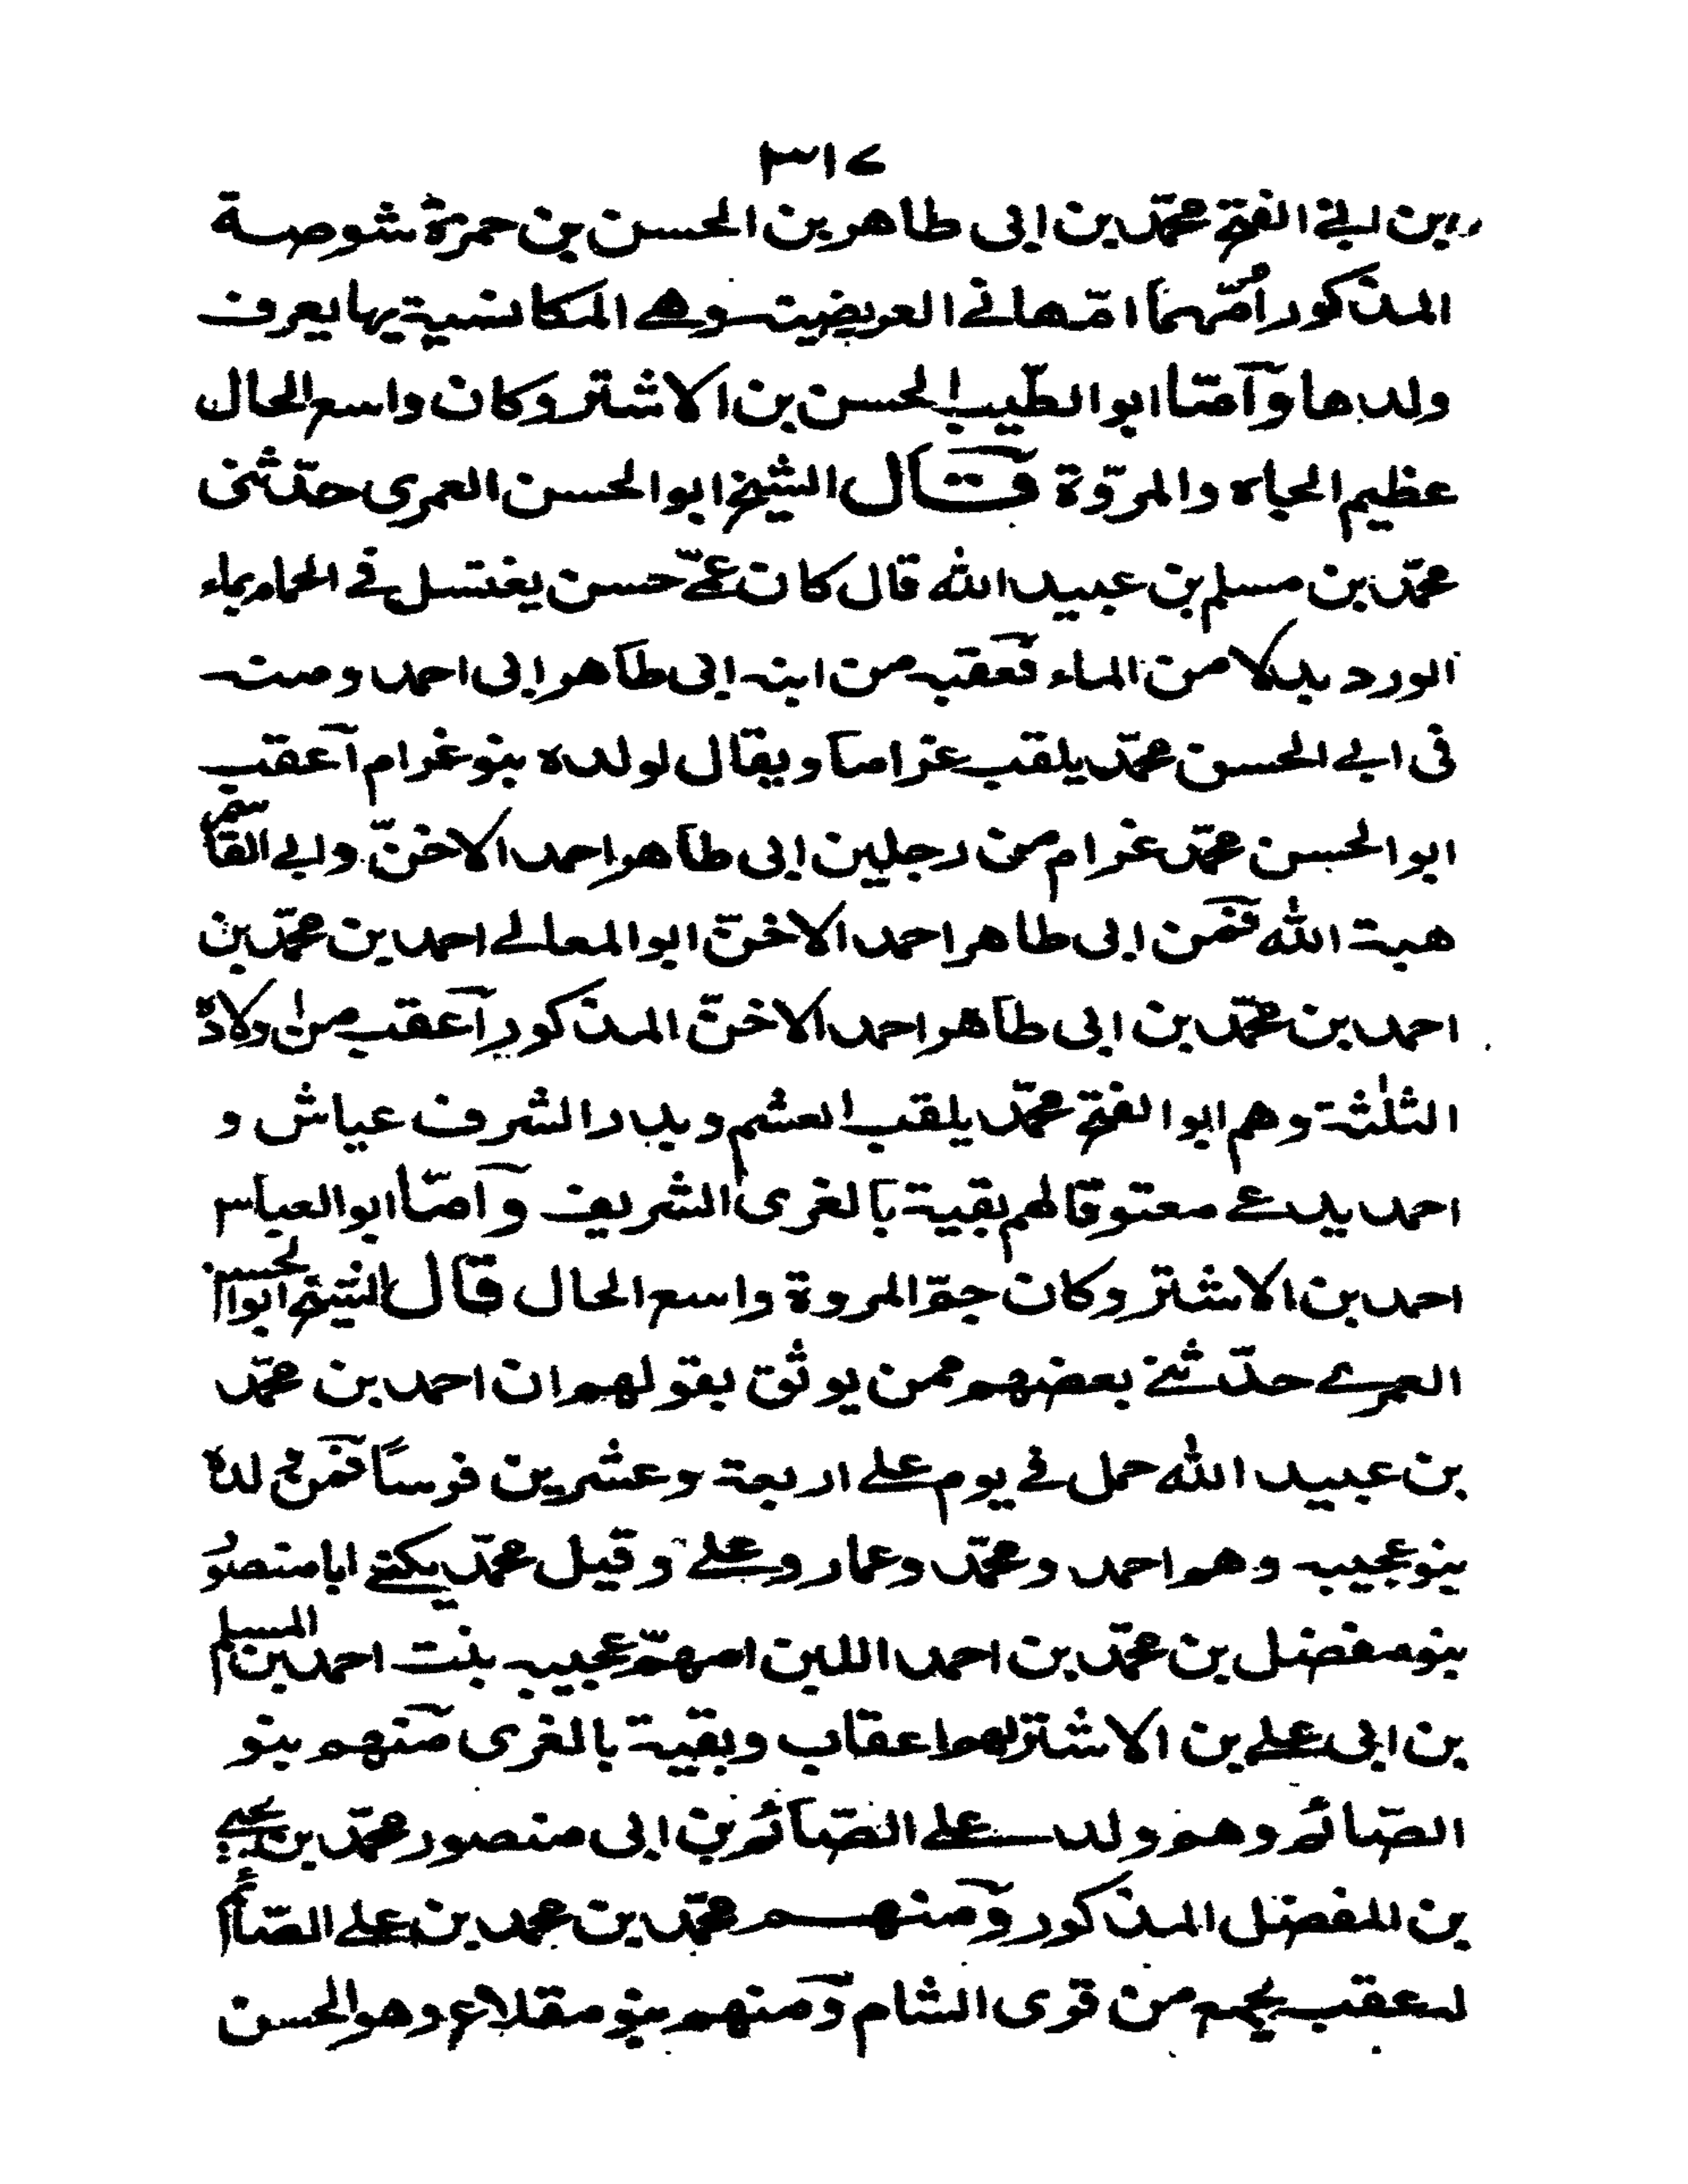 ٣١٧
بن ابی الفتح محمّد بن ابی طاهر بن الحسن بن حمزة شوصة
المذكور اُمّهما امّ هانے العریضیة وهے المكانسیة بها یعرف
ولدها وآمّا ابوالطّیب الحسن بن الاشتر وكان واسع الحال
عظیم الجاه والمروّة قال الشیخ ابوالحسن العمری حدّثنی
محمّد بن مسلم بن عبید الله قال كان عمّے حسن یغتسل فے الحمام بماء
الورد بدلا من الماء فعقبه من ابنه ابی طاهر ابی احمد ومنه
فی ابے الحسن محمّد یلقب عزاما ویقال لولده بنو غرام آعقب
ابوالحسن محمّد غرام من رجلین ابی طاهر احمد الاخنّ وابے القاسم
هبة الله فمن ابی طاهر احمد الاخنّ ابوالمعالے احمد بن محمّد بن
احمد بن محمّد بن ابی طاهر احمد الاخنّ المذكور آعقب من اولاده
الثلٰثة وهم ابوالفتح محمّد یلقب العشم وبدرالشرف عیاش و
احمد یدعے معتوقا لهم بقیة بالغری الشریف وآمّا ابوالعباس
احمد بن الاشتر وكان جمّ المروة واسع الحال قال الشیخ ابوالحسن
العمرے حدّثنے بعضهم ممن یوثق بقولهم ان احمد بن محمّد
بن عبید الله حمل فے یوم علے اربعة وعشرین فرساً فمن ولده
بنو عجیبه وهم احمد ومحمّد وعمار وعلے وقیل محمّد یكنے ابا منصور
بنو مفضل بن محمّد بن احمد اللبن امهمّ عجیبه بنت احمد بن المسلم
بن ابی علے بن الاشتر لهم اعقاب وبقیة بالغری منهم بنو
الصّائم وهم ولد علے الصّائم بن ابی منصور محمّد بن یحیے
بن المفضل المذكور ومنهم محمّد بن محمد بن علے الصّائم
له عقب بجمع من قری الشام ومنهم بنو مقلاع وهو الحسن